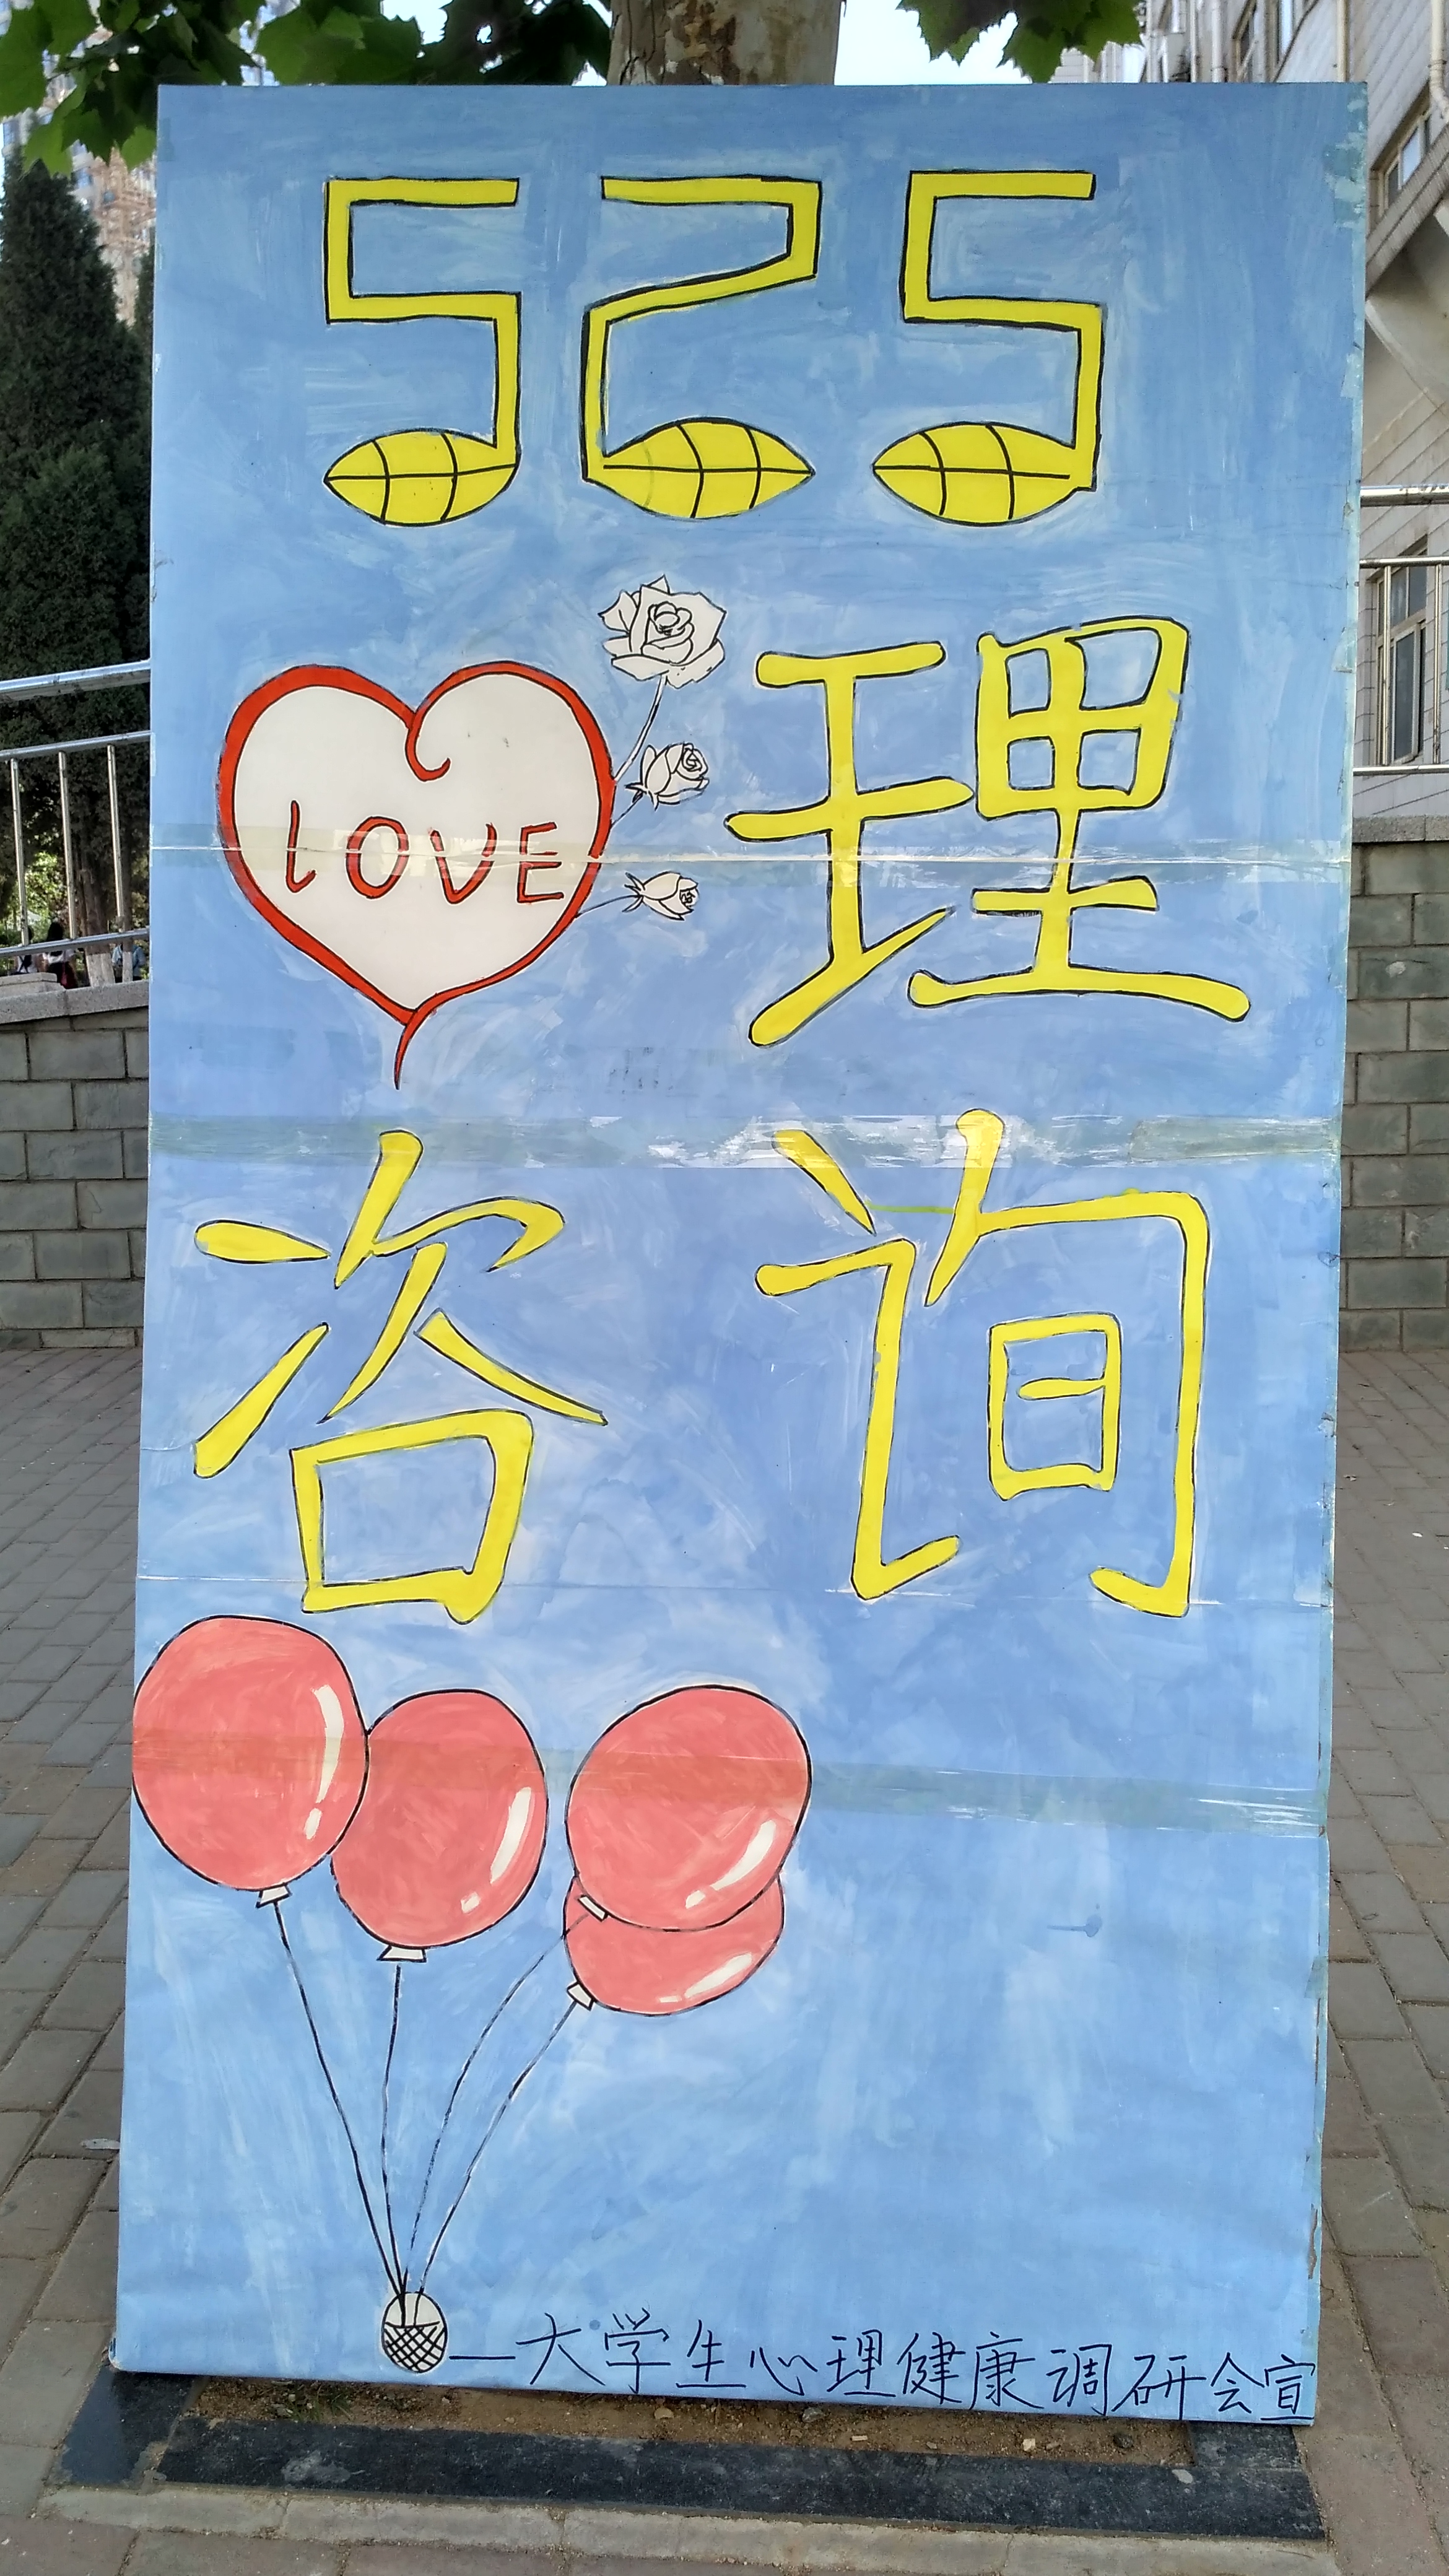 525
LOVE
理
咨询
—大学生心理健康调研会宣